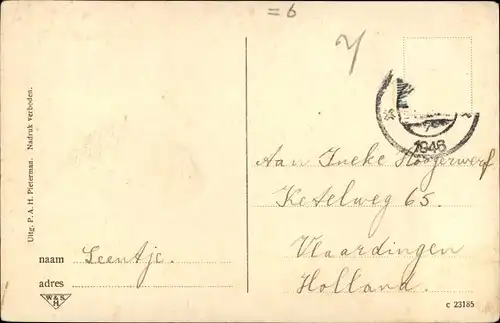 =6
Uitg. P. A. H. Pieterman. Nadruk verboden.
1946
Aan Ineke Hoogerwerf
Ketelweg 65.
Vlaardingen
Holland.
naam Leentje.
adres
W&S
H
c 23185